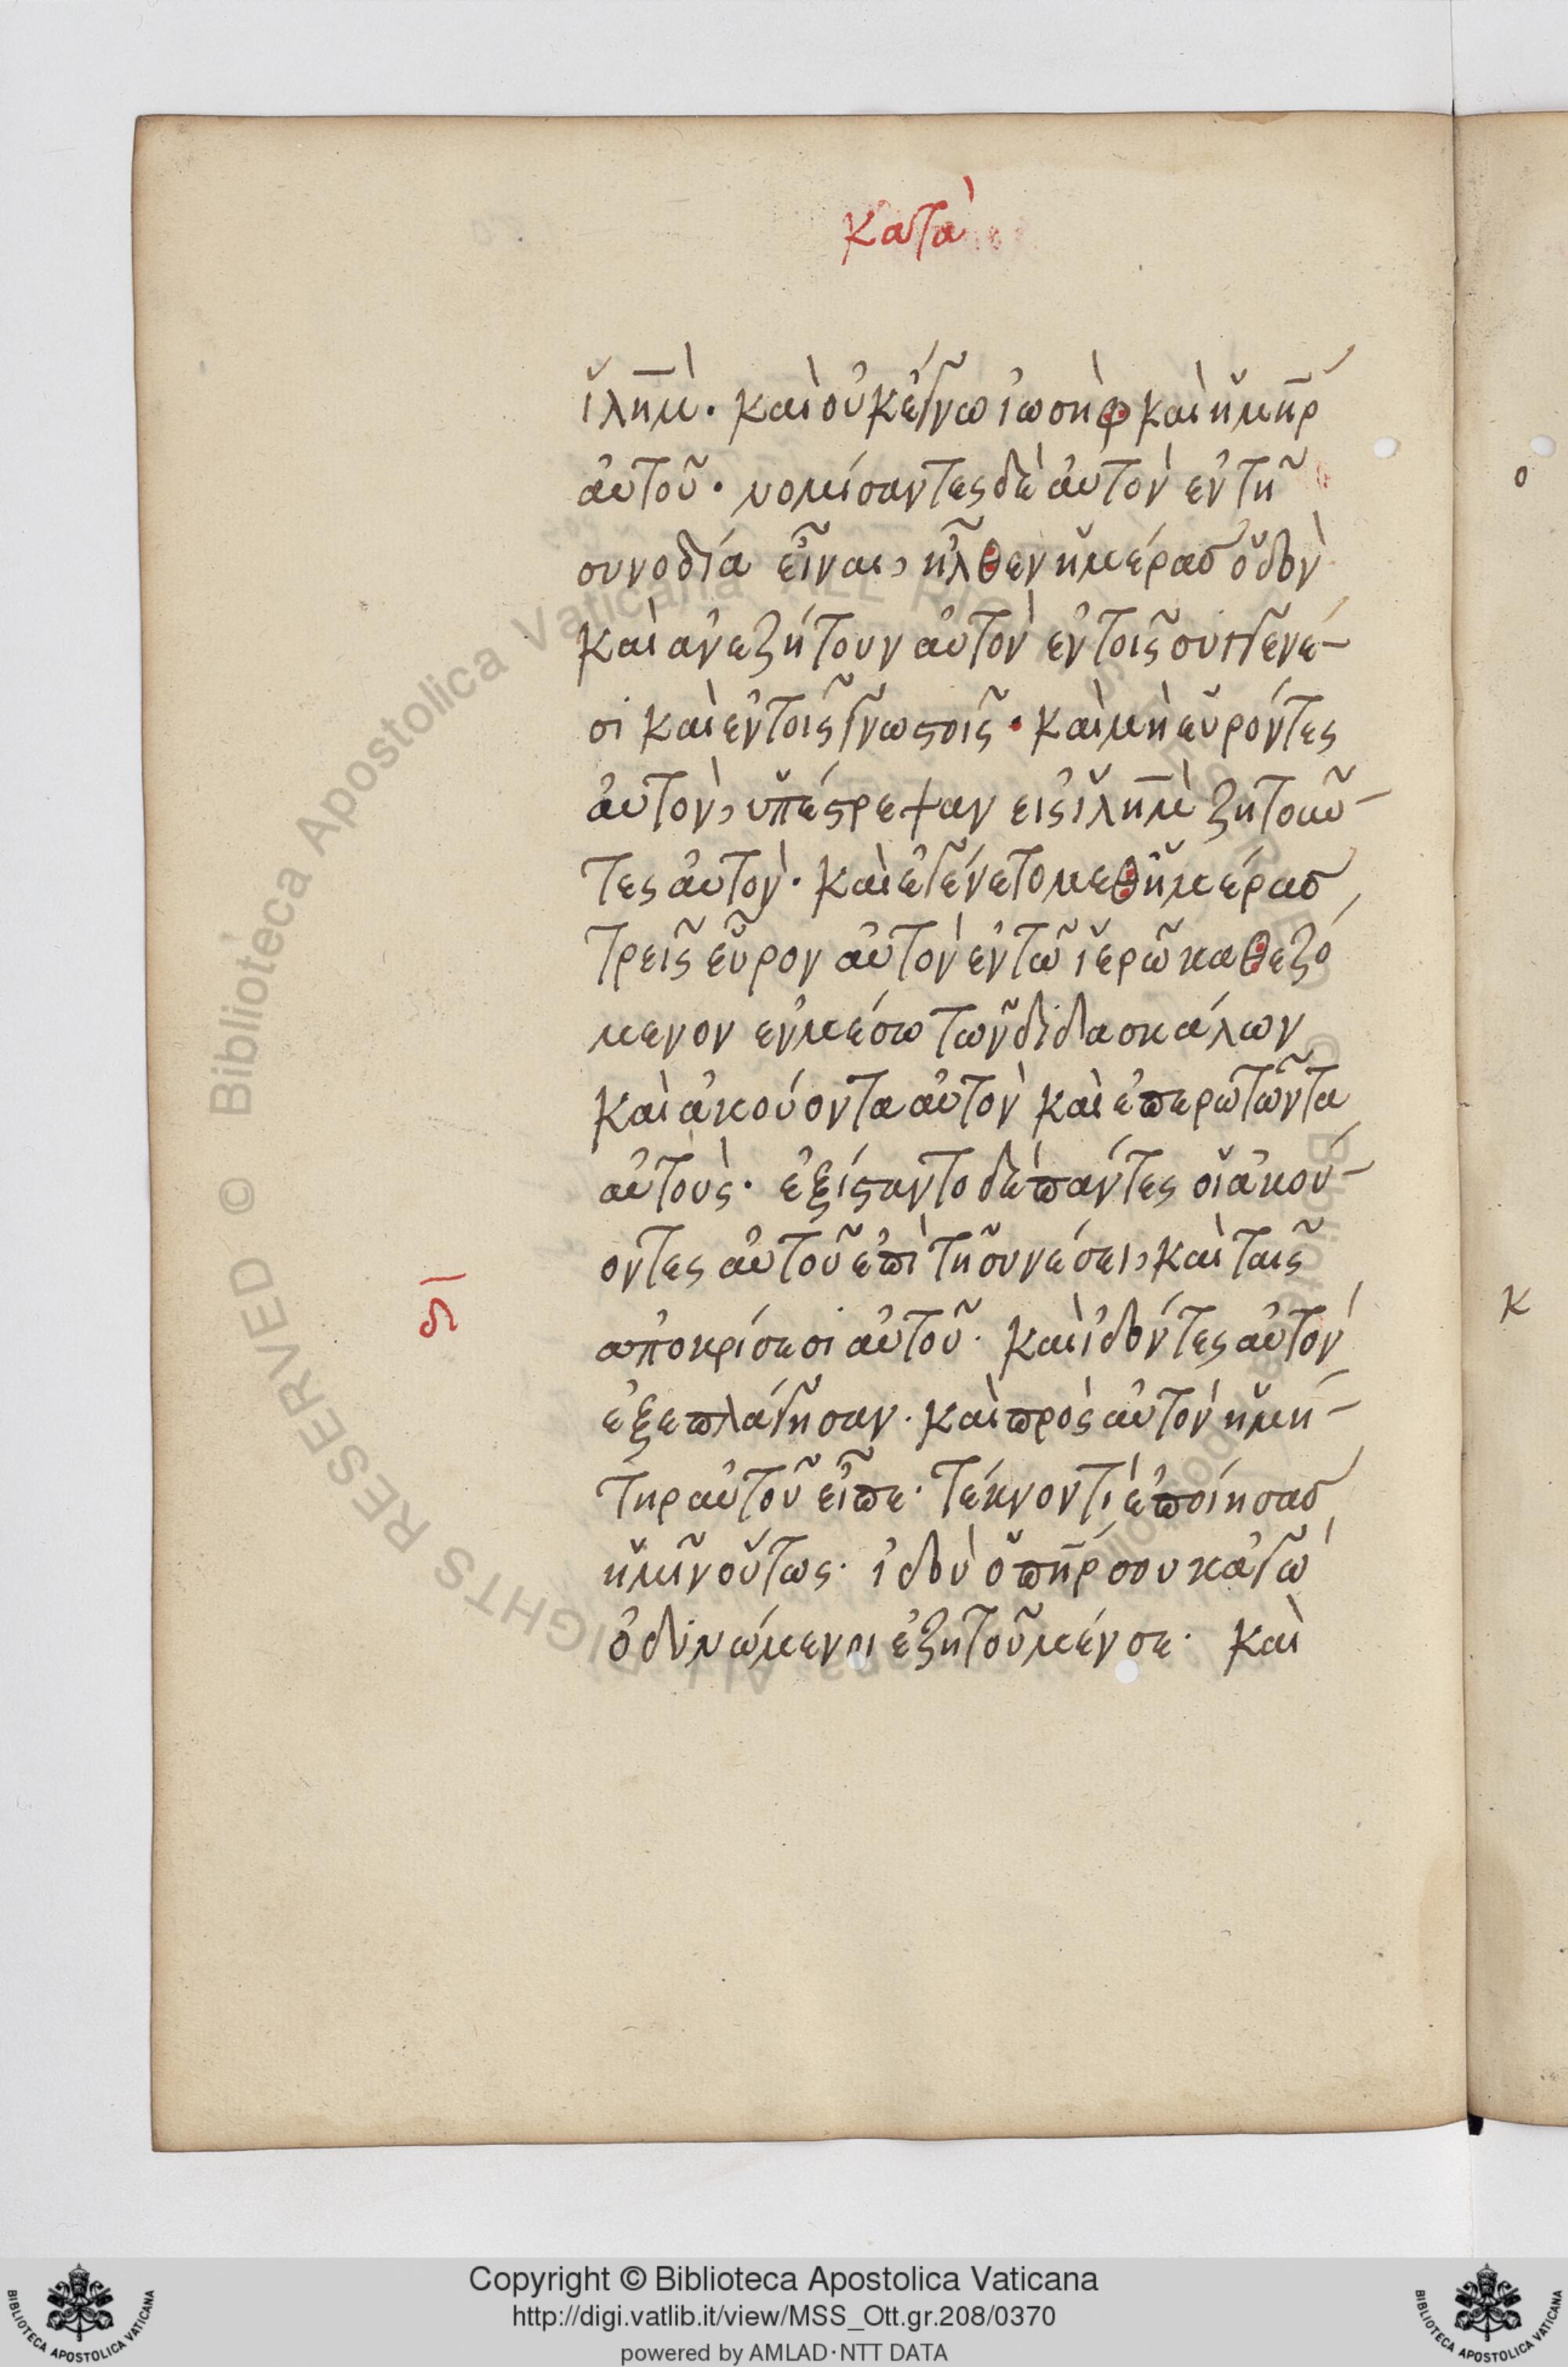 κατὰ
ἱλημ̅. καὶ οὐκ ἔγνω ἰωσὴφ καὶ ἡ μηρ̅
αὐτοῦ. νομίσαντες δὲ αὐτὸν ἐν τῆ
συνοδία εἶναι, ἦλθεν ἡμέρας ὁδὸν
καὶ ἀνεζήτουν αὐτὸν ἐν τοῖς συγγενέ-
σι καὶ ἐν τοῖς γνωϛοῖς. καὶ μὴ εὑρόντες
αὐτὸν, ὑπέϛρεψαν εἰς ἱλημ̅ ζητοῦν-
τες αὐτόν. καὶ ἐγένετο μεθ ἡμέρας
τρεῖς εὗρον αὐτὸν ἐν τῶ ἱερῶ καθεζό
μενον ἐν μέσω τῶν διδασκάλων
καὶ ἀκούοντα αὐτὸν καὶ ἐπερωτῶντα
αὐτούς. ἐξίϛαντο δὲ πάντες οἱ ἀκού-
οντες αὐτοῦ ἐπὶ τῆ συνέσει, καὶ ταῖς
δ̅
ἀποκρίσεσι αὐτοῦ. καὶ ἰδόντες αὐτὸν
ἐξεπλάγησαν. καὶ πρὸς αὐτὸν ἡ μή-
τηρ αὐτοῦ εἶπε. τέκνον τί ἐποίησας
ἡμῖν οὕτως. ἰδοὺ ὁ πηρ̅ σου κἀγὼ
ὀδυνώμενοι ἐζητοῦμέν σε. καὶ
ο
κ
© Biblioteca Apostolica Vaticana ALL RIGHTS RESERVED
Copyright © Biblioteca Apostolica Vaticana
http://digi.vatlib.it/view/MSS_Ott.gr.208/0370
powered by AMLAD·NTT DATA
BIBLIOTECA APOSTOLICA VATICANA
BIBLIOTECA APOSTOLICA VATICANA